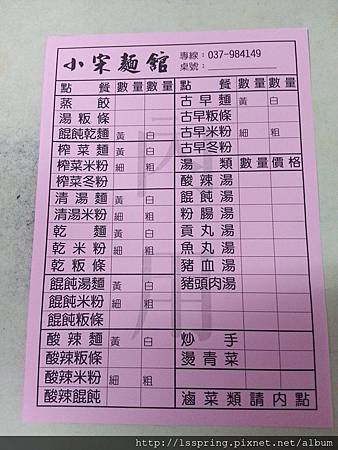 小宋麵館 專線：037-984149
桌號：
點餐 數量 數量
蒸餃
湯粄條
餛飩乾麵 黃 白
榨菜麵 黃 白
榨菜米粉 細 粗
榨菜冬粉
清湯麵 黃 白
清湯米粉 細 粗
乾麵 黃 白
乾米粉 細 粗
乾粄條
餛飩湯麵 黃 白
餛飩米粉 細 粗
餛飩粄條
酸辣麵 黃 白
酸辣粄條
酸辣米粉 細 粗
酸辣餛飩
點餐 數量 數量
古早麵 黃 白
古早粄條
古早米粉 細 粗
古早冬粉
湯類 數量 價格
酸辣湯
餛飩湯
粉腸湯
貢丸湯
魚丸湯
豬血湯
豬頭肉湯
炒手
燙青菜
滷菜類請內點
內用
http://lsspring.pixnet.net/album